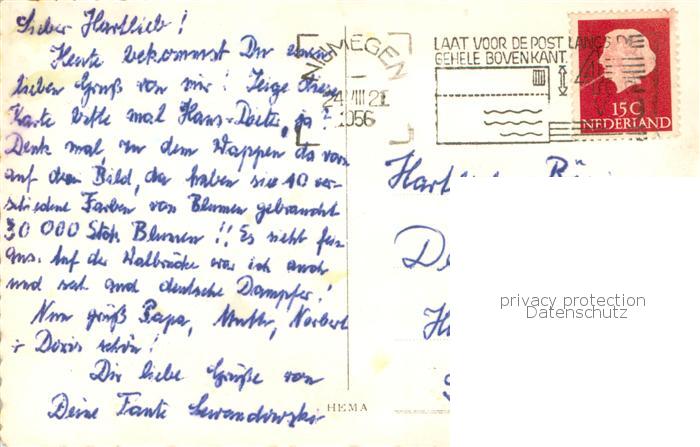 Lieber Hartlieb!
Heute bekommst Du einen
lieben Gruß von mir! Zeige diese
Karte bitte mal Hans-Dieter, ja?
Denk mal, zu dem Wappen da vorn
auf dem Bild, da haben sie 10 ver-
schiedene Farben von Blumen gebraucht
30 000 Stck Blumen!! Es sieht fein
aus. Auf der Walbrücke war ich auch
und sah auch deutsche Dampfer!
Nun grüß Papa, Mutti, Norbert
+ Doris schön!
Dir liebe Grüße von
Deine Tante Lewandowski
HEMA
NIJMEGEN
24 VIII 21
1956
LAAT VOOR DE POST LANGS DE
GEHELE BOVENKANT
15 C
NEDERLAND
privacy protection
Datenschutz